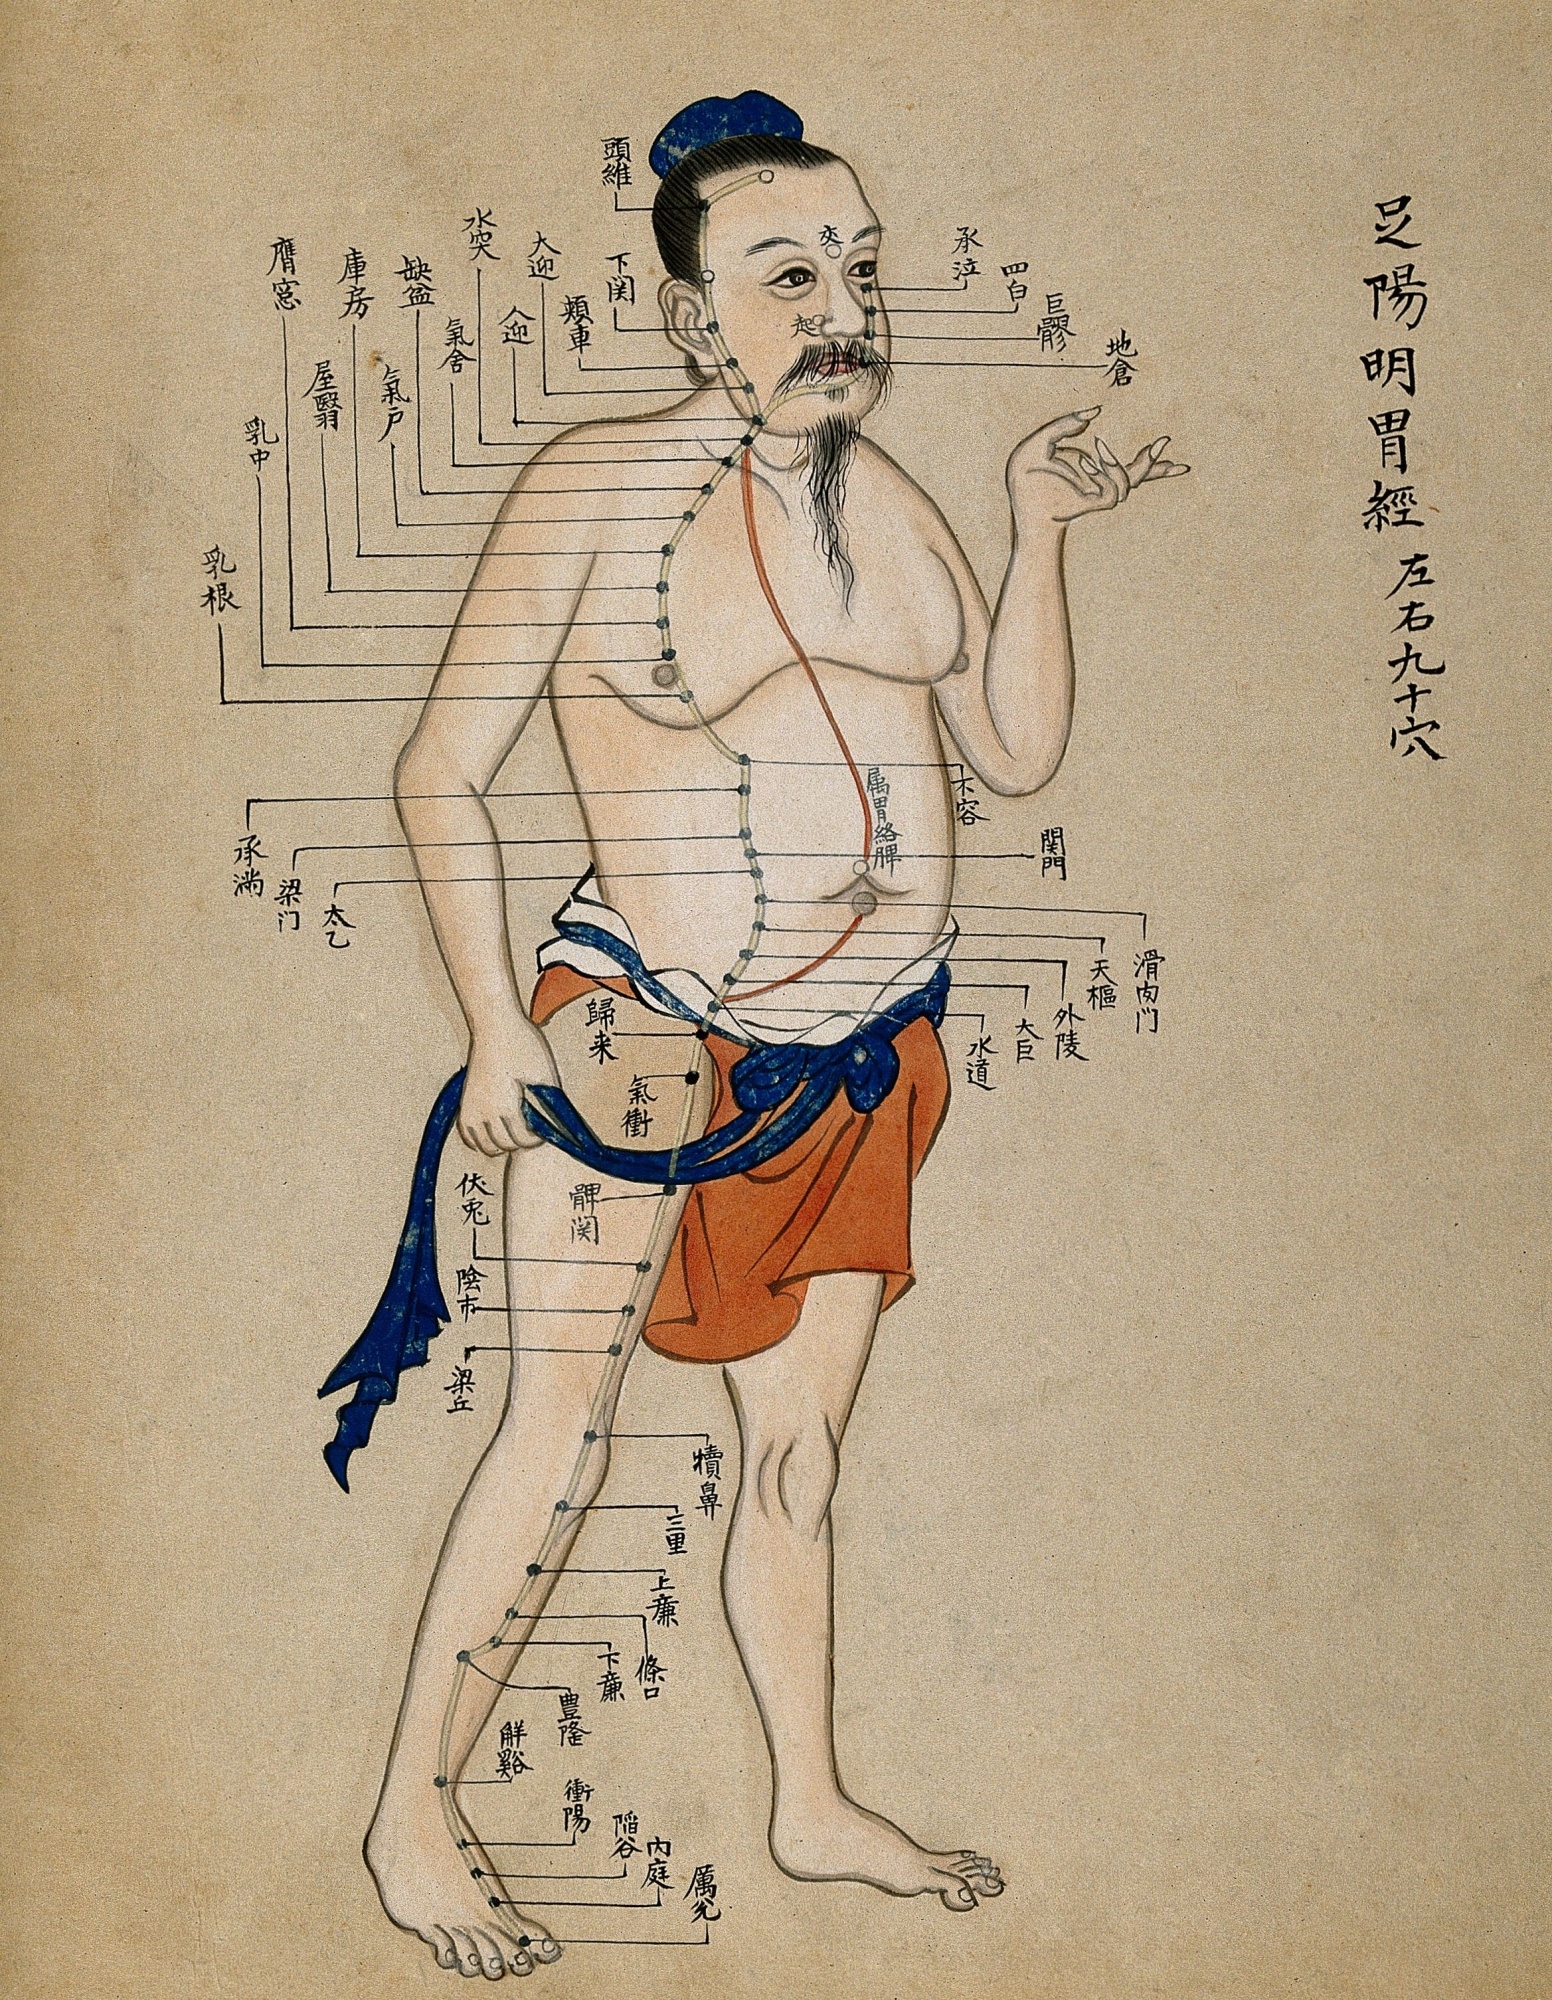 足陽明胃經 左右九十穴
頭維
下関
頰車
大迎
人迎
水突
氣舍
缺盆
氣戶
庫房
屋翳
膺窓
乳中
乳根
交
起
承泣
四白
巨髎
地倉
不容
承滿
梁门
関門
太乙
属胃絡脾
滑肉门
天樞
外陵
大巨
水道
歸来
氣衝
髀関
伏兎
陰市
梁丘
犢鼻
三里
上廉
條口
下廉
豊隆
解谿
衝陽
陷谷
内庭
厲兊